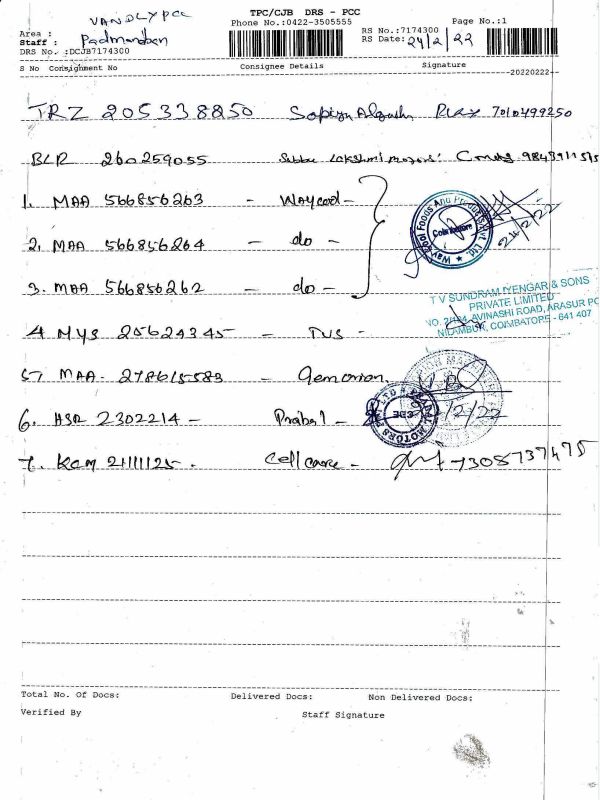 TPC/CJB DRS - PCC
VANDLYPCC
Phone No.:0422-3505555
Page No.:1
Area :
RS No.:7174300
Staff : Padmanaben
RS Date: 24/2/22
DRS No. :DCJB7174300
S No Consignment No Consignee Details Signature
20220222
TRZ 205338850 7010499250
BLR 260259055 Lakshmi motors
1. MAA 566856263 - Waycool -
2. MAA 566856264 - do -
3. MAA 566856262 - do -
Way Cool Foods And Products Pvt Ltd. Coimbatore
24/2/22
T V SUNDRAM IYENGAR & SONS
PRIVATE LIMITED
AVINASHI ROAD, ARASUR PO
NILAMBUR, COIMBATORE - 641 407
4 MYS 25624345 - TVS -
5 MAA - 278615583 - Gemorion.
6. HSR 2302214 - Prabal -
MOTORS
/2/22
7. KCM 21111125 . Cell care - 7308737475
Total No. Of Docs: Delivered Docs: Non Delivered Docs:
Verified By Staff Signature